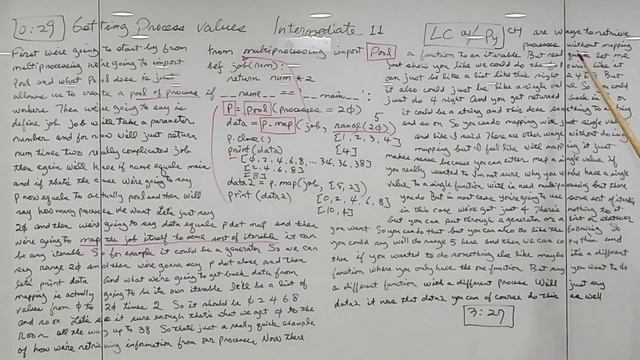 0:29 Getting Process values Intermediate 11
LC w/ Py CH
First we're going to start by from
multiprocessing we're going to import
Pool and what Pool does is just
allows us to create a pool of process
workers Then we're going to say is
define job job will take a parameter
number and for now will just return
num times two really complicated job
then again we'll have if name equals main
and if that's the case we're going to say
P now equals to actually pool and then will
say how many processes we want let's just say
20 and then we're going to say data equals p dot map and then
we're going to map the job itself to some sort of iterable it can
be any iterable So for example it could be a generator So we can
say range 20 and then we're gonna say p dot close and then
let's print data And what we're going to get back from
mapping is actually going to be its own iterable It'll be a list of
values from 0 to 20 times 2 So it should be 0 2 4 6 8
and so on let's see it sure enough that's what we get 0 to the
Room all the way up to 38 So that's just a really quick example
of how we're retrieving information from our processes Now there
from multiprocessing import Pool
def job(num):
return num * 2
if __name__ == '__main__':
P = Pool(processes = 20)
5
data = p.map(job, range(20))
p.close() [1, 2, 3, 4]
print(data) [4]
[0, 2, 4, 6, 8, ... 34, 36, 38]
[2, 4, 6, 8]
[8]
data2 = p.map(job, [5, 2])
print(data2) [0, 2, 4, 6, 8]
[10, 4]
are ways to retrieve
processes without mapping
a function to an iterable But really
just show you like we could do the
can just be like a list like this right
it could also just be like a single
just do 4 right And you get returned
it could be a string and
and so on So you can do mapping with just single value
and like I said There are other ways without doing
mapping but I feel like with mapping it just
makes sense because you can either map a single value if
you really wanted to I'm not sure why you have a single
value to a single function with in need multiprocessing but there
you do But in most cases you're going to use some sort of iterable
in this case we've got just a
but you can put through a generator or a list or whatever
you want So you can do that but you can also do like the following So
you could say will do range 5 here and then we can co py this and
then if you wanted to do something else like maybe it's a different
function where you only have the one function But say you want to do
a different function with a different process Will just say
data2 it now that data2 you can of course do this as well
3:27